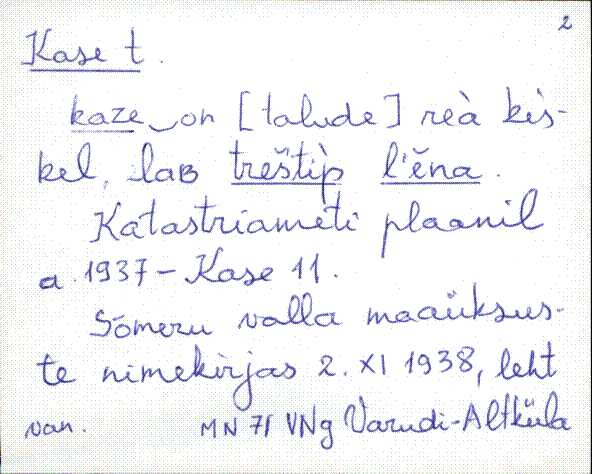 2
Kase t.
kaze‿on [talude] reà kès-
kel, lab trěštìp l'ěna.
Katastriameti plaanil
a. 1937 - Kase 11.
Sõmeru valla maaüksus-
te nimekirjas 2. XI 1938, leht
van. MN 71 VNg Varudi-Altküla